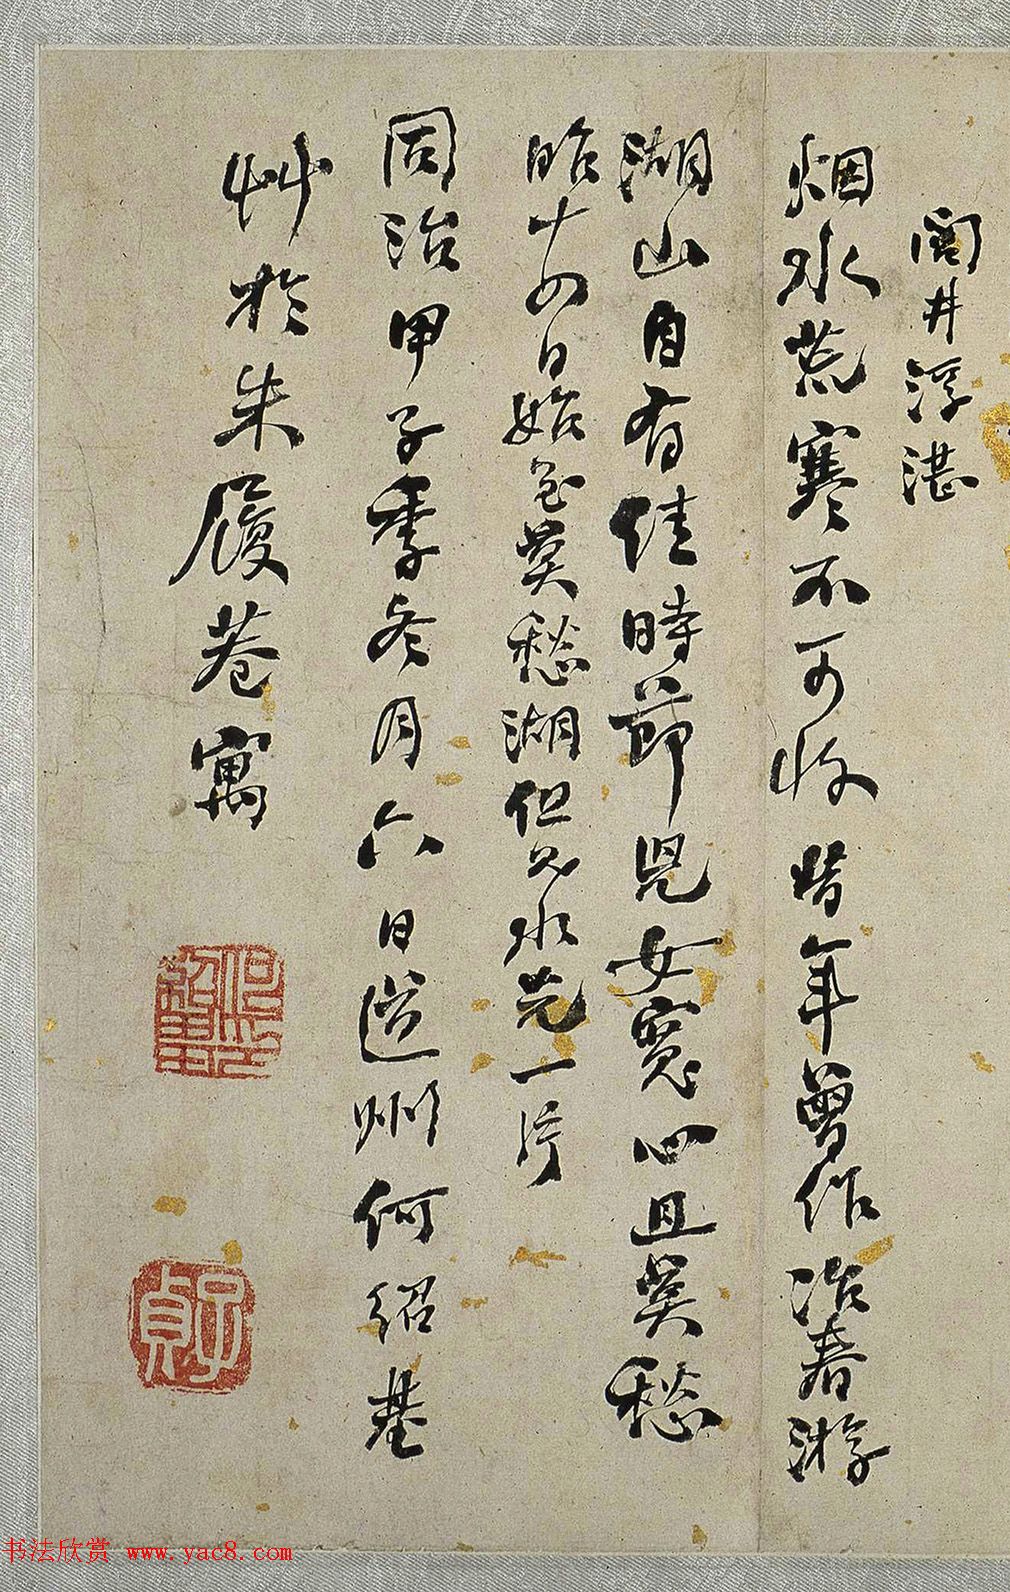 閤井浮湛
烟水荒寒不可收昔年曾作冶春游
湖山自有佳時節兒女寬心且莫愁
昨十四日始至莫愁湖但見水光一片
同治甲子季冬月六日道州何紹基
艸於朱履巷寓
何紹基印
子貞
书法欣赏 www.yac8.com